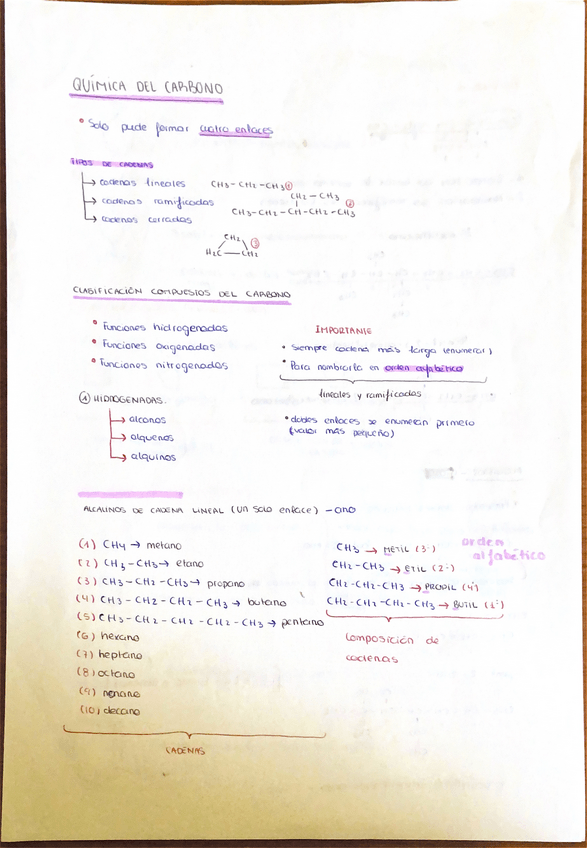 QUÍMICA DEL CARBONO
Solo puede formar cuatro enlaces
TIPOS DE CADENAS
cadenas lineales CH3 - CH2 - CH3 ①
cadenas ramificadas
CH2 - CH3 ②
CH3 - CH2 - CH - CH2 - CH3
cadenas cerradas
CH2 ③
H2C — CH2
CLASIFICACIÓN COMPUESTOS DEL CARBONO
Funciones hidrogenadas
Funciones oxigenadas
Funciones nitrogenadas
IMPORTANTE
Siempre cadena más larga (enumerar)
Para nombrarla en orden alfabético
lineales y ramificadas
dobles enlaces se enumeran primero
(valor más pequeño)
① HIDROGENADAS.
→ alcanos
→ alquenos
→ alquinos
ALCALINOS DE CADENA LINEAL (UN SOLO ENLACE) - ANO
(1) CH4 → metano
(2) CH3 - CH3 → etano
(3) CH3 - CH2 - CH3 → propano
(4) CH3 - CH2 - CH2 - CH3 → butano
(5) CH3 - CH2 - CH2 - CH2 - CH3 → pentano
(6) hexano
(7) heptano
(8) octano
(9) nonano
(10) decano
CADENAS
CH3 → METIL (3º)
CH2 - CH3 → ETIL (2º)
CH2 - CH2 - CH3 → PROPIL (4º)
CH2 - CH2 - CH2 - CH3 → BUTIL (1º)
orden
alfabético
composición de
cadenas